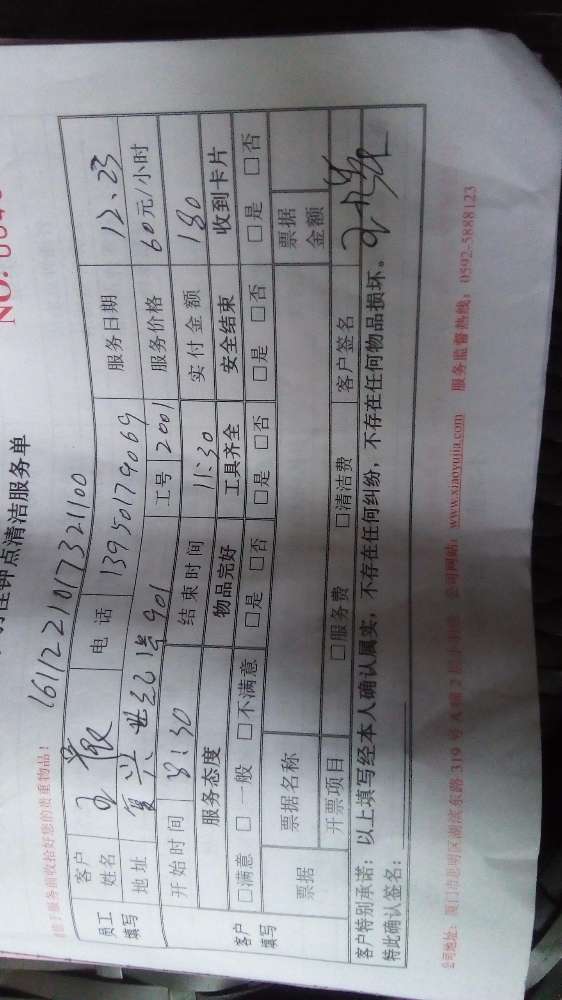 NO.
钟点清洁服务单
161122101732 1100
收拾好您的贵重物品！
员工填写
客户姓名 王 电话 13950179069 服务日期 12.23
地址 复兴世纪1号901 工号 2001 服务价格 60元/小时
开始时间 8:30 结束时间 11:30 实付金额 180
客户填写
服务态度 物品完好 工具齐全 安全结束 收到卡片
□满意 □一般 □不满意 □是 □否 □是 □否 □是 □否 □是 □否
票据 票据名称 票据金额
开票项目 □服务费 □清洁费
客户特别承诺：以上填写经本人确认属实，不存在任何纠纷，不存在任何物品损坏。
特此确认签名： 客户签名
公司地址：厦门市思明区湖滨东路319号A幢2 公司网站：www.xiaoyujia.com 服务监督热线：0592-5888123